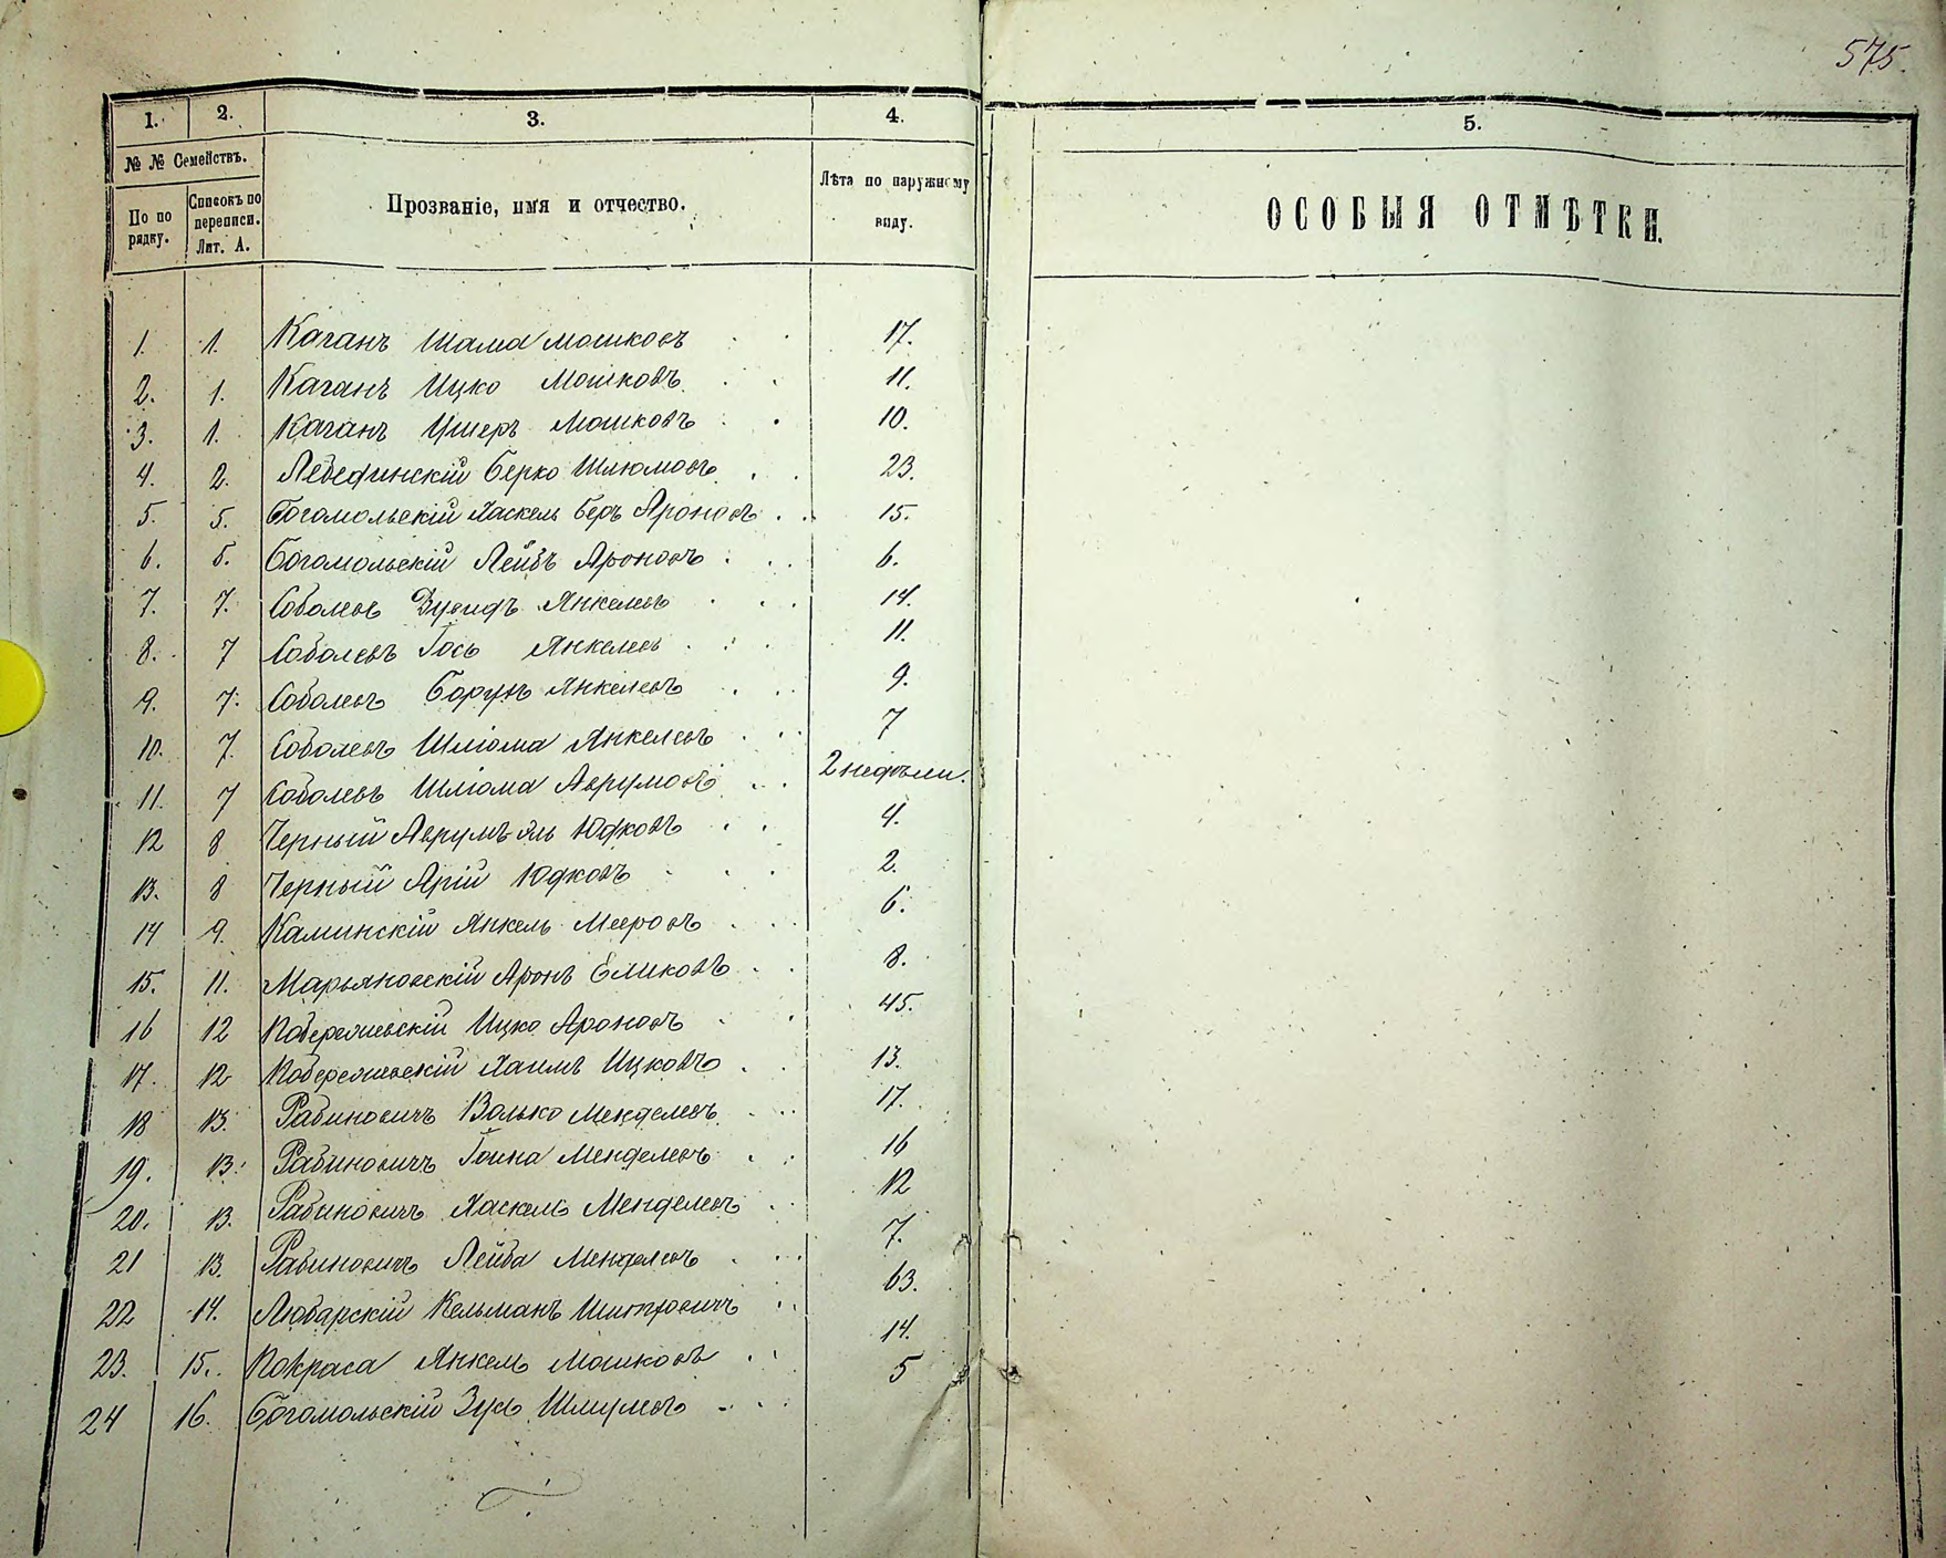 575.
1. 2. 3. 4. 5.
№ № Семействъ.
По по рядку. Списокъ по переписи. Лит. А. Прозваніе, имя и отчество. Лѣта по наружному виду. ОСОБЫЯ ОТМѢТКИ.
1. 1. Каганъ Шама Мошковъ 17.
2. 1. Каганъ Ицко Мошковъ 11.
3. 1. Каганъ Ушеръ Мошковъ 10.
4. 2. Лебединскій Берко Шлюмовъ 23.
5. 5. Богомольскій Хаскель Беръ Ароновъ 15.
6. 5. Богомольскій Лейбъ Ароновъ 6.
7. 7. Соболевъ Янкелевъ 14.
8. 7 Соболевъ Гось Янкелевъ 11.
9. 7. Соболевъ Борухъ Янкелевъ 9.
10. 7. Соболевъ Шліома Янкелевъ 7
11. 7 Соболевъ Шліома Аврумовъ 2 недѣли.
12 8 Черный Аврумъ Эль Юдковъ 4.
13. 8 Черный Арій Юдковъ 2.
14 9. Каминскій Янкель Мееровъ 6.
15. 11. Марьяновскій Аронъ Еликовъ 8.
16 12 Побережевскій Ицко Ароновъ 45.
17. 12 Побережевскій Хаимъ Ицковъ 13.
18 13. Рабиновичъ Волько Менделевъ 17.
19. 13. Рабиновичъ Гоина Менделевъ 16
20. 13. Рабиновичъ Хаскель Менделевъ 12
21 13. Рабиновичъ Лейба Менделевъ 7.
22 14. Любарскій Кельманъ 63.
23. 15. Покраса Янкель Мошковъ 14.
24 16. Богомольскій Зусь Шмулевъ 5